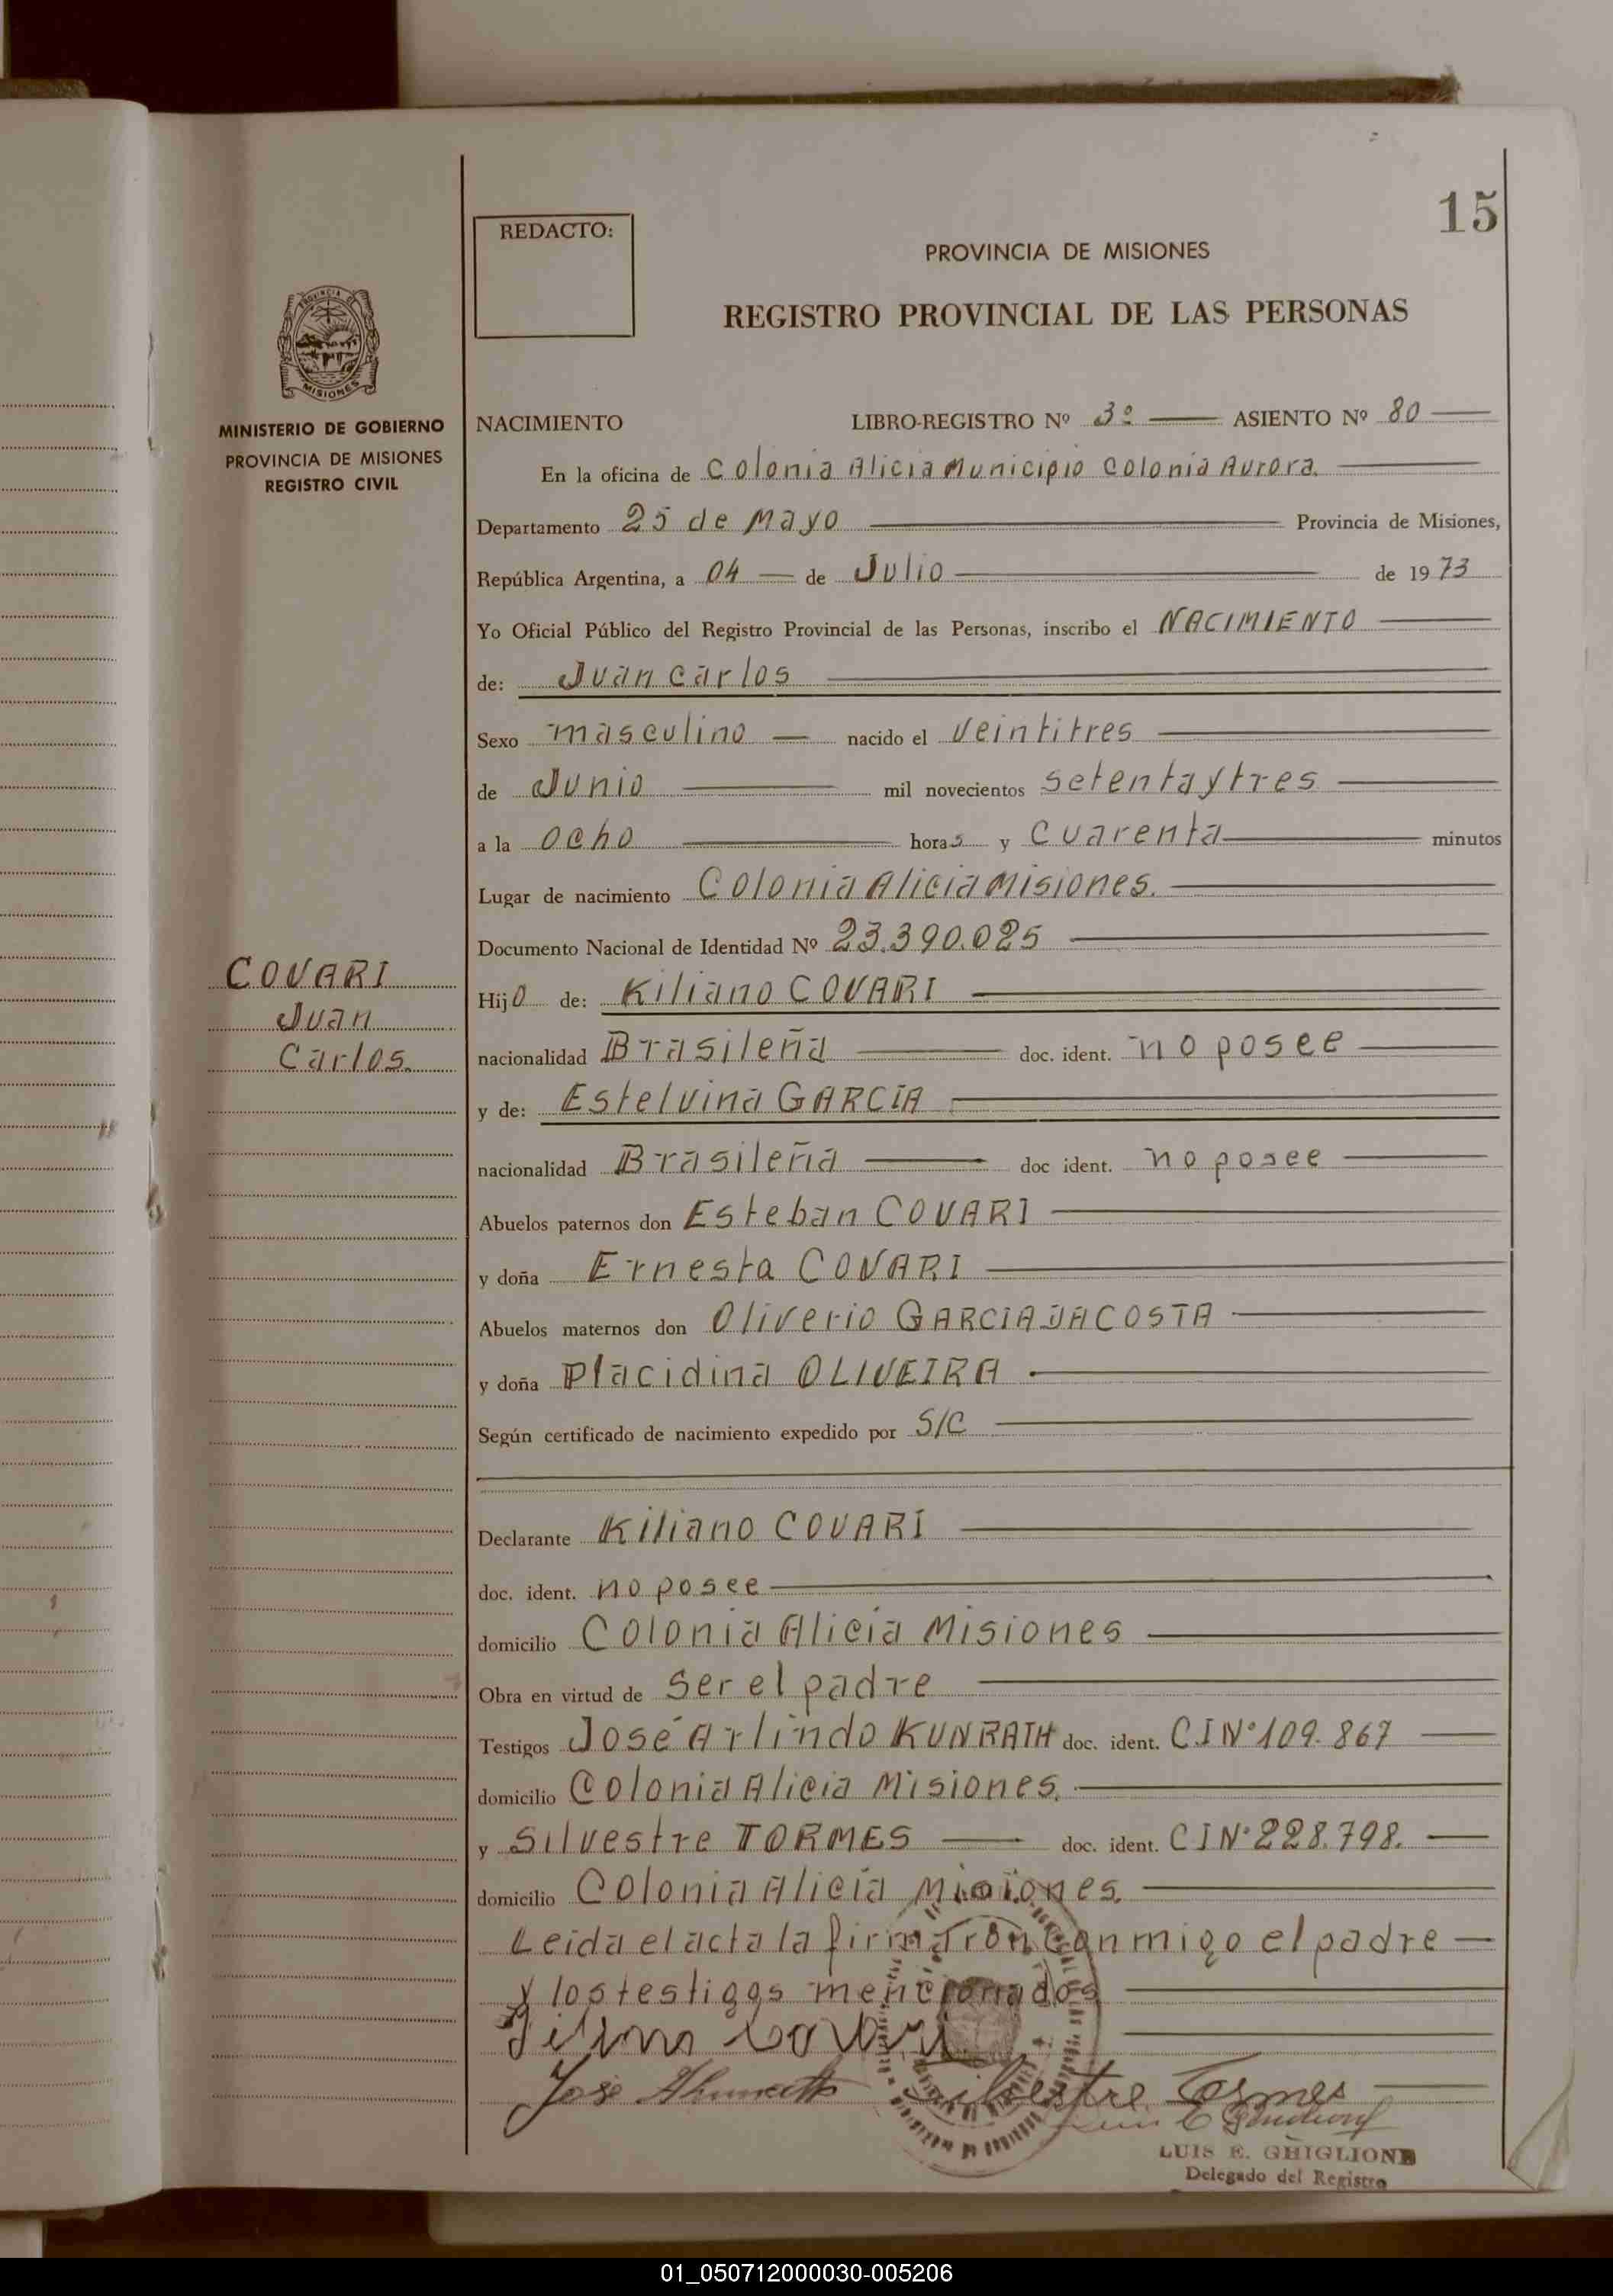 15
REDACTO:
PROVINCIA DE MISIONES
REGISTRO PROVINCIAL DE LAS PERSONAS
PROVINCIA DE
MISIONES
MINISTERIO DE GOBIERNO
PROVINCIA DE MISIONES
REGISTRO CIVIL
NACIMIENTO LIBRO-REGISTRO Nº 3º ASIENTO Nº 80
En la oficina de Colonia Alicia Municipio Colonia Aurora.
Departamento 25 de Mayo Provincia de Misiones,
República Argentina, a 04 de Julio de 1973
Yo Oficial Público del Registro Provincial de las Personas, inscribo el NACIMIENTO
de: Juan Carlos
Sexo masculino nacido el veintitres
de Junio mil novecientos setentaytres
a la ocho horas y cuarenta minutos
Lugar de nacimiento Colonia Alicia Misiones.
Documento Nacional de Identidad Nº 23.390.025
COVARI
Juan
Carlos.
Hijo de: Kiliano COVARI
nacionalidad Brasileña doc. ident. no posee
y de: Estelvina GARCIA
nacionalidad Brasileña doc ident. no posee
Abuelos paternos don Esteban COVARI
y doña Ernesta COVARI
Abuelos maternos don Oliverio GARCIA DACOSTA
y doña Placidina OLIVEIRA
Según certificado de nacimiento expedido por S/C
Declarante Kiliano COVARI
doc. ident. no posee
domicilio Colonia Alicia Misiones
Obra en virtud de ser el padre
Testigos José Arlindo KUNRATH doc. ident. CI Nº 109.867
domicilio Colonia Alicia Misiones.
y Silvestre TORMES doc. ident. CI Nº 228.798.
domicilio Colonia Alicia Misiones.
Leida el acta la firmaron conmigo el padre
y los testigos mencionados
Silvestre Tormes
LUIS E. GHIGLIONE
Delegado del Registro
01_050712000030-005206